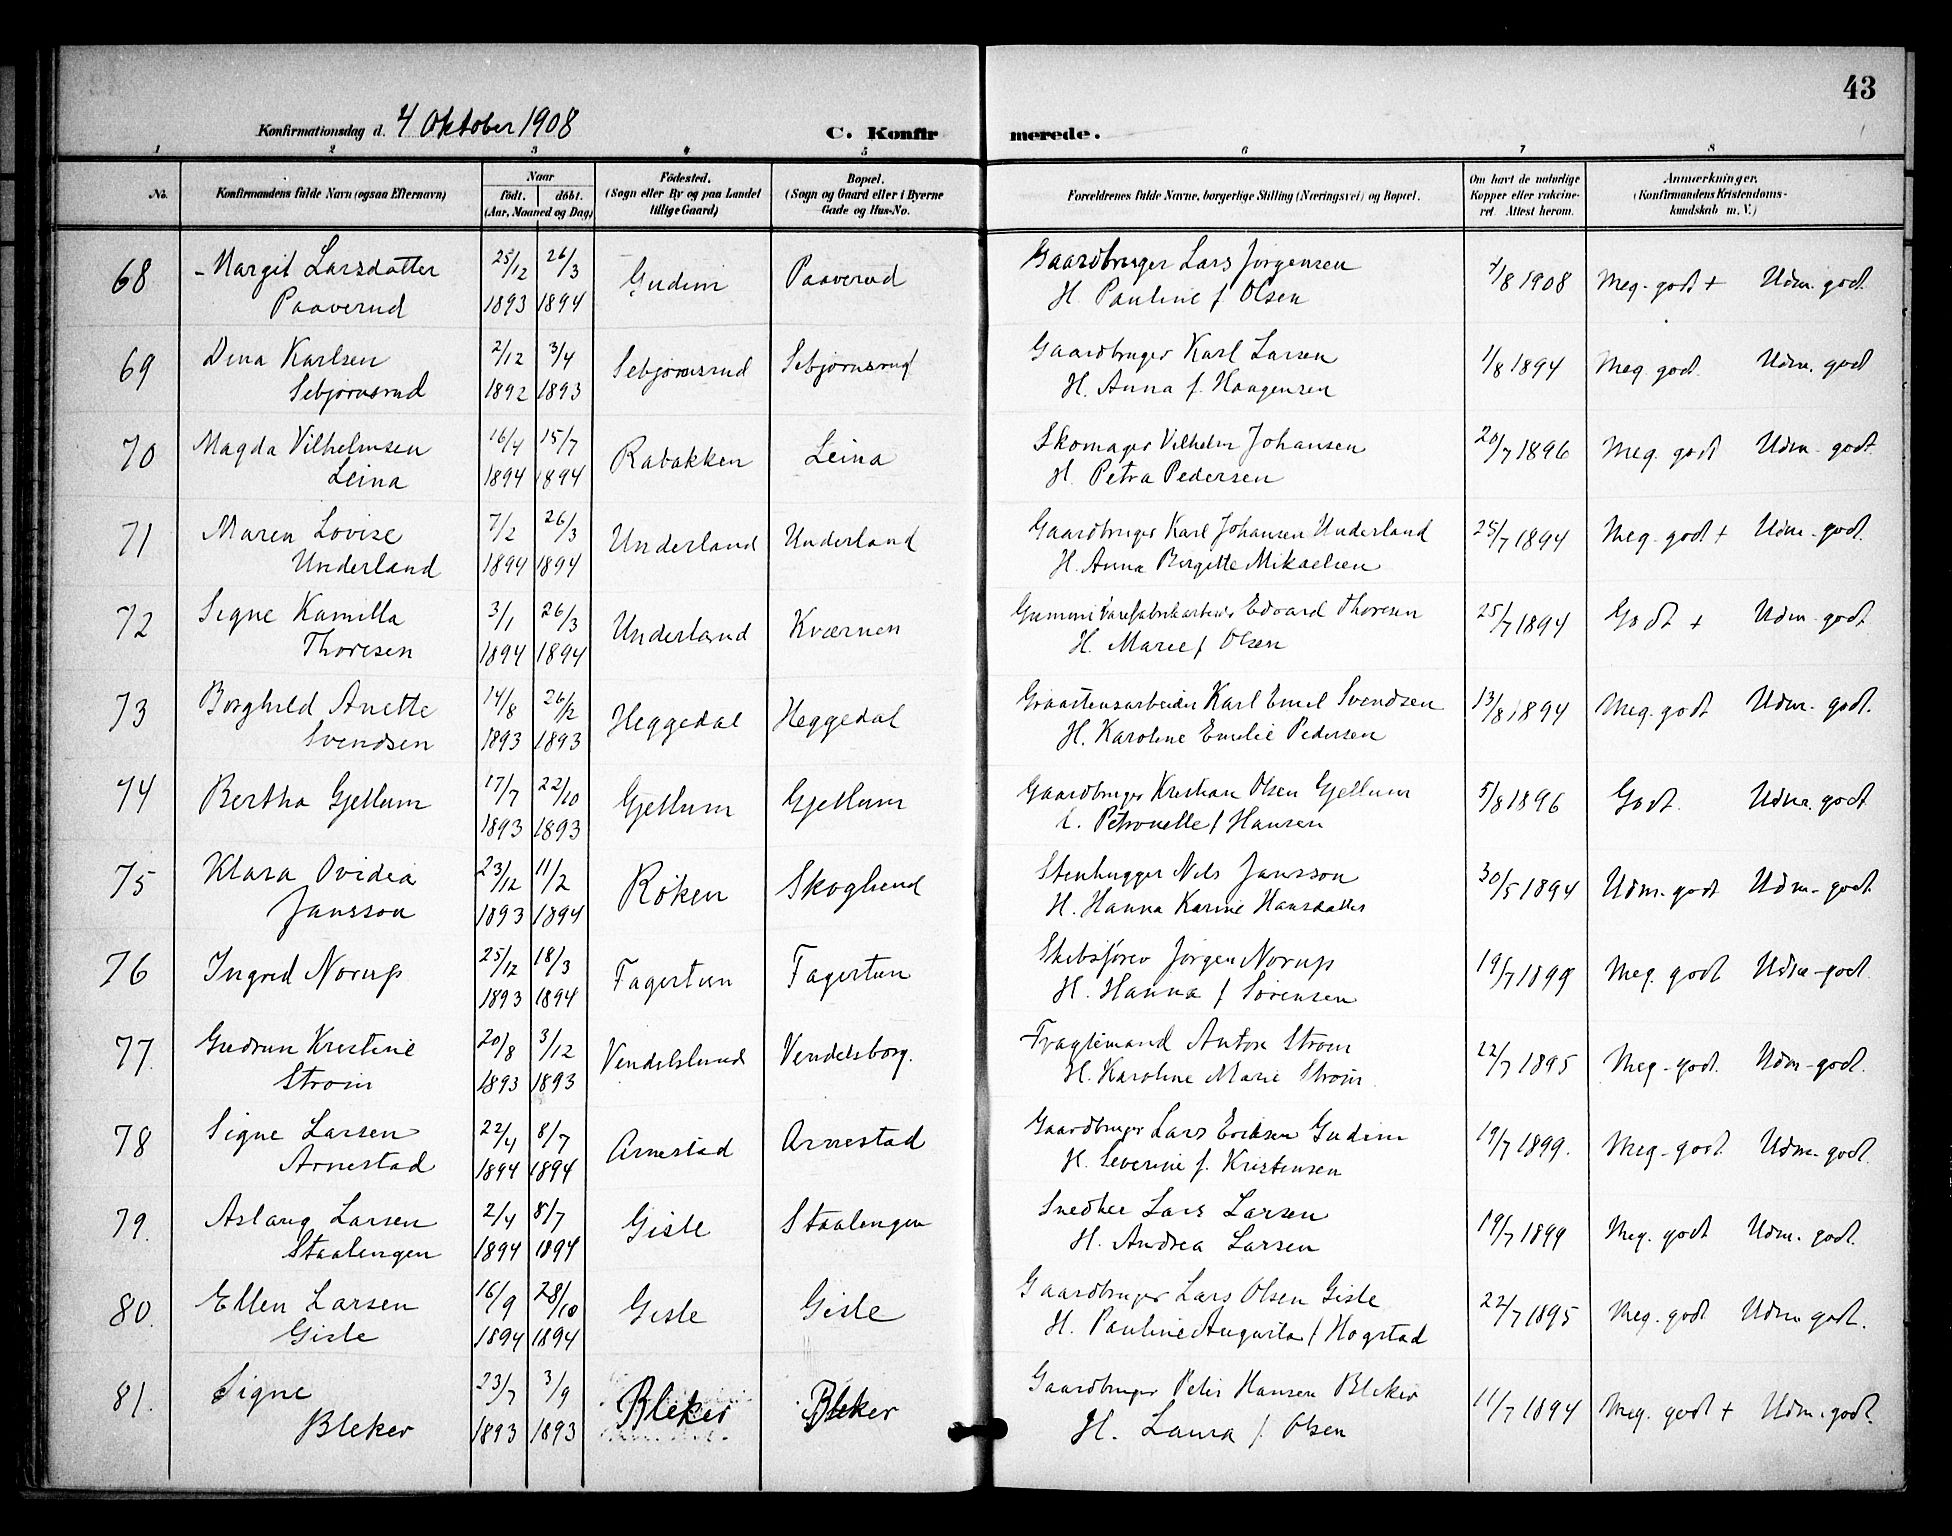 43
Konfirmationsdag d. 4 Oktober 1908
C. Konfirmerede.
1 2 3 4 5 6 7 8
No. Konfirmandens fulde Navn (ogsaa Efternavn) Naar født. døbt. (Aar, Maaned og Dag) Fødested. (Sogn eller By og paa Landet tillige Gaard) Bopæl. (Sogn og Gaard eller i Byerne Gade og Hus-No. Forældrenes fulde Navne, borgerlige Stilling (Næringsvei) og Bopæl. Om havt de naturlige Kopper eller vakcineret. Attest herom. Anmerkninger. (Konfirmandens Kristendomskundskab m. V.)
68 Margit Larsdatter 25/12 26/3 Gudim Paaverud Gaardbruger Lars Jørgensen 7/8 1908 Meg. godt + Udm. godt.
Paaverud 1893 1894 H. Pauline f. Olsen
69 Dina Karlsen 2/12 3/4 Sebjørnsrud Sebjørnsrud Gaardbruger Karl Larsen 1/8 1894 Meg godt. Udm. godt
Sebjørnsrud 1892 1893 H. Anna f. Haagensen
70 Magda Vilhelmsen 16/4 15/7 Rabakken Leina Skomager Vilhelm Johansen 20/7 1896 Meg. godt Udm. godt.
Leina 1894 1894 H. Petra Pedersen
71 Maren Lovise 7/2 26/3 Underland Underland Gaardbruger Karl Johansen Underland 25/7 1894 Meg. godt + Udm. godt.
Underland 1894 1894 H. Anna Birgitte Mikaelsen
72 Signe Kamilla 3/1 26/3 Underland Kværnen Gummivarefabrikarbeider Edvard Thoresen 25/7 1894 Godt + Udm. godt
Thoresen 1894 1894 H. Marie f. Olsen
73 Borghild Anette 14/8 26/2 Heggedal Heggedal Graastensarbeider Karl Emil Svendsen 13/8 1894 Meg. godt Udm. godt.
Svendsen 1893 1893 H. Karoline Emilie Pedersen
74 Bertha Gjellum 17/7 22/10 Gjellum Gjellum Gaardbruger Kristian Olsen Gjellum 5/8 1896 Godt. Udm. godt
1893 1893 H. Petronelle f Hansen
75 Klara Ovidia 23/12 11/2 Røken Skoglund Stenhugger Nils Jansson 30/5 1894 Udm. godt Udm. godt.
Jansson 1893 1894 H. Hanna Karine Hansdatter
76 Ingrid Norup 25/12 18/3 Fagertun Fagertun Skibsfører Jørgen Norup 19/7 1899 Meg. godt Udm. godt.
1893 1894 H. Hanna f Sørensen
77. Gudrun Kristine 20/8 3/12 Vendelslund Vendelsborg. Fragtemand Anton Strøm 22/7 1895 Meg. godt. Udm. godt.
Strøm 1893 1893 H. Karoline Marie Strøm.
78 Signe Larsen 22/4 8/7 Arnestad Arnestad Gaardbruger Lars Eriksen Gudim 19/7 1899. Meg. godt Udm. godt.
Arnestad 1894 1894 H. Severine f. Kristensen
79. Aslaug Larsen 2/4 8/7 Gisle Staalengen Snedker Lars Larsen 19/7 1899 Meg. godt Udm. godt.
Staalengen 1894 1894 H. Andrea Larsen
80. Ellen Larsen 16/9 28/10 Gisle Gisle Gaardbruger Lars Olsen Gisle 22/7 1895 Meg. godt Udm godt.
Gisle 1894 1894 H. Pauline Augusta f Hogstad
81. Signe 23/7 3/9 Bleker Bleker Gaardbruger Peter Hansen Bleker 11/7 1894 Meg. godt + Udm. godt.
Bleker 1893 1893 H. Laura f. Olsen